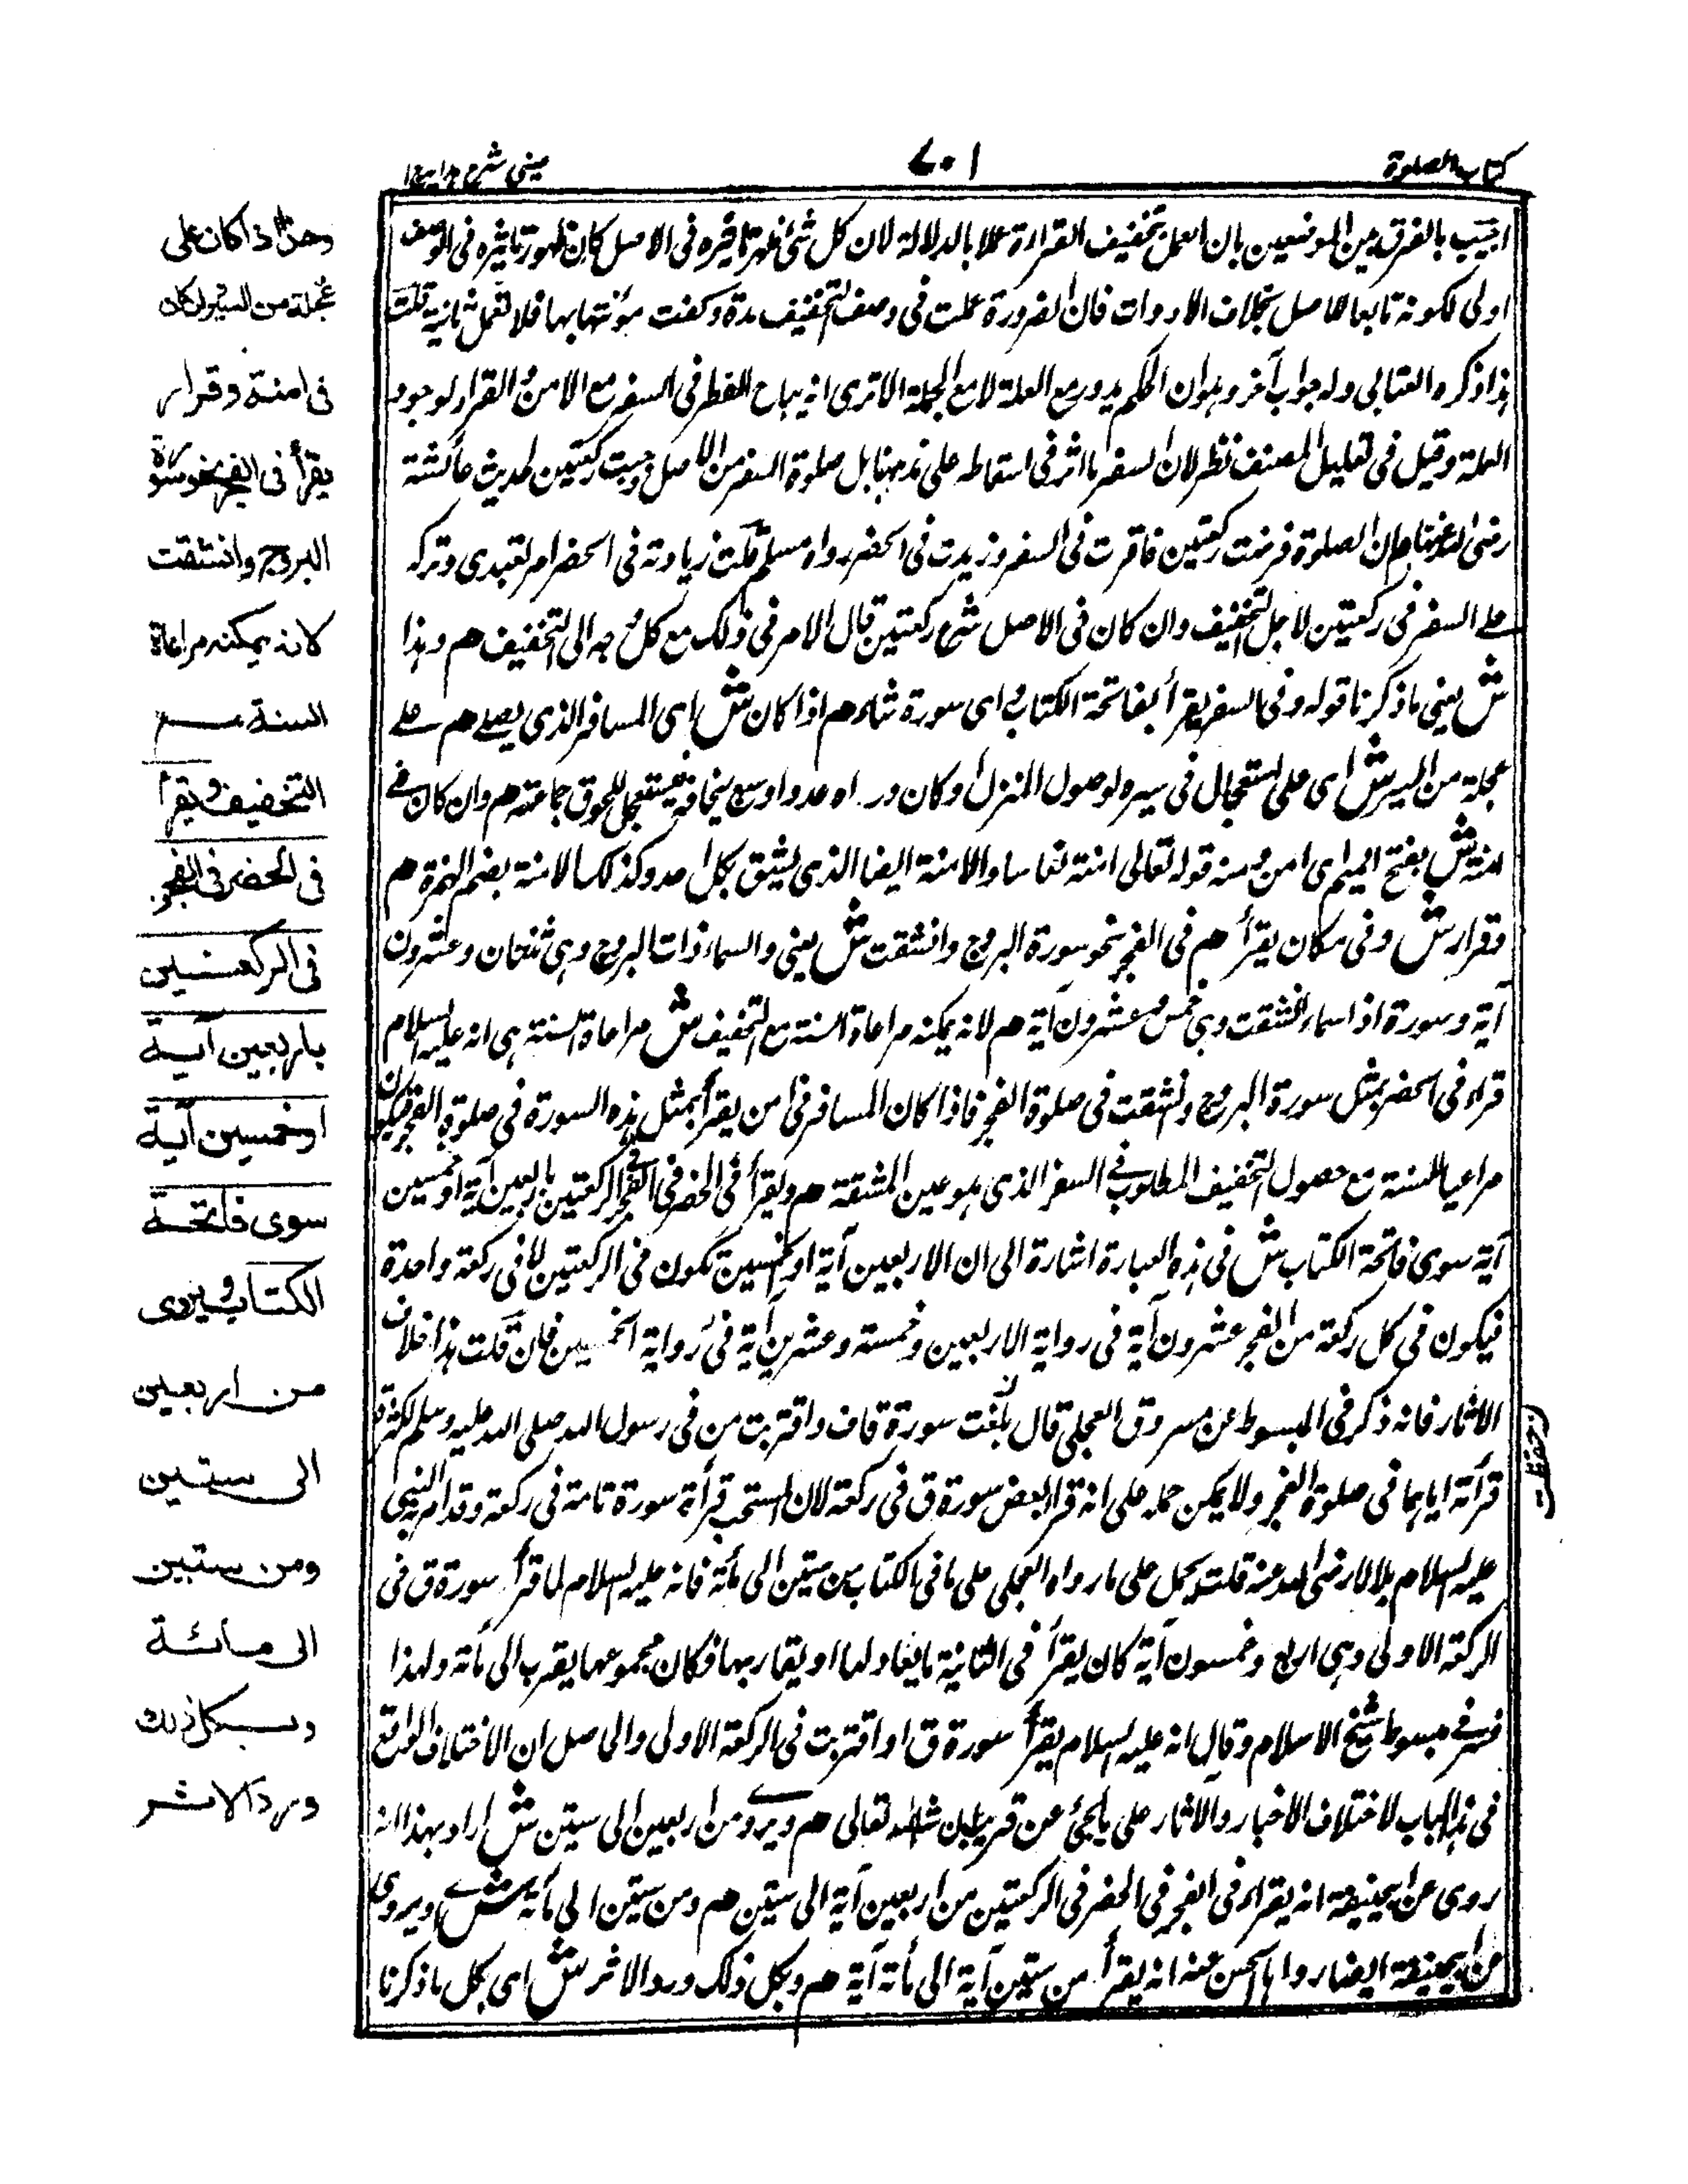 كتاب الصلوة
٧٠١
عينى شرح هداية ج ا
اجيب بالفرق بين الموضعين بان العمل بتخفيف القراءة عملا بالدلالة لان كل شئ ظهر تاثيره فى الاصل كان ظهور تاثيره فى الوصف
اولى لكونه تابعا للاصل بخلاف الاروات فان الضرورة عملت فى وصف التخفيف مرة وكفت مؤنتها بها فلا تعمل ثانية قلت
هذا ذكره العتابى وله جواب آخر وهو ان الحكم يدور مع العلة لا مع الحكمة الا ترى انه يباح الفطر فى السفر مع الامن والقرار لوجود
العلة وقيل فى تعليل المصنف نظر لان السفر ما اثر فى اسقاطه على مذهبنا بل صلوة السفر من الاصل وجبت ركعتين لحديث عائشة
رضى الله عنها ان الصلوة فرضت ركعتين فاقرت فى السفر وزيدت فى الحضر رواه مسلم قلت زيادته فى الحضر امر تعبدى وتركه
على السفر فى ركعتين لاجل التخفيف وان كان فى الاصل شرع ركعتين قال الامر فى ذلك مع كل وجه الى التخفيف هم وهذا
ش يعنى ما ذكرنا قوله وفى السفر يقرأ بفاتحة الكتاب واى سورة شاء هم اذا كان ش اى المسافر الذى يصلى هم على
عجلة من السير ش اى على استعجال فى سيره لوصول المنزل او كان وراءه عدو او سبع يخافه فيستعجل للحوق جماعته هم وان كان فى
امنة ش بفتح الميم اى امن ومنه قوله تعالى امنة نعاسا والامنة ايضا الذى يثق بكل احد وكذلك الامنة بضم الهمزة هم
وقرار ش وفى مكان يقرأ هم فى الفجر نحو سورة البروج وانشقت ش يعنى والسماء ذات البروج وهى ثنتان وعشرون
آية وسورة اذا السماء انشقت وهى خمس وعشرون آية هم لانه يمكنه مراعاة السنة مع التخفيف ش مراعاة السنة هى انه عليه السلام
قراء فى الحضر بمثل سورة البروج وانشقت فى صلوة الفجر فاذا كان المسافر فى امن يقرأ بمثل هذه السورة فى صلوة الفجر فيكون
مراعيا للسنة مع حصول التخفيف المطلوب فى السفر الذى هو عين المشقة هم ويقرأ فى الحضر فى الفجر فى الركعتين باربعين آية او خمسين
آية سوى فاتحة الكتاب ش فى هذه العبارة اشارة الى ان الاربعين آية او خمسين تكون فى الركعتين لا فى ركعة واحدة
فيكون فى كل ركعة من الفجر عشرون آية فى رواية الاربعين وخمسة وعشرين آية فى رواية الخمسين فان قلت هذا خلاف
الاثار فانه ذكر فى المبسوط عن مسروق العجلى قال تلقفت سورة قاف واقتربت من فى رسول الله صلى الله عليه وسلم لكثرة
قرأته اياهما فى صلوة الفجر ولا يمكن حمله على انه قرا بعض سورة ق فى ركعة لان المستحب قرأة سورة تامة فى ركعة وقد امر النبى
عليه السلام بلالا رضى الله عنه قلت يحمل على ما رواه العجلى على ما فى الكتاب من ستين الى مأة فانه عليه السلام لما قرأ سورة ق فى
الركعة الاولى وهى اربع وخمسون آية كان يقرأ فى الثانية ما يعادلها او يقاربها فكان مجموعها يقرب الى مأة ولهذا
فسر فى مبسوط شيخ الاسلام وقال انه عليه السلام يقرأ سورة ق او اقتربت فى الركعة الاولى والحاصل ان الاختلاف الواقع
فى هذا الباب لاختلاف الاخبار والاثار على ما يجئ عن قريب ان شاء الله تعالى هم ويروى من اربعين الى ستين ش اراد بهذا انه
روى عن ابيحنيفة انه يقراء فى الفجر فى الحضر فى الركعتين من اربعين آية الى ستين هم ومن ستين الى مأة ش ويروى
عن ابيحنيفة ايضا رواها الحسن عنه انه يقرأ من ستين آية الى مأة آية هم وبكل ذلك ورد الاثر ش اى بكل ما ذكرنا
وهذا اذا كان على
عجلة من السير وان كان
فى امنة وقرار
يقرأ فى الفجر نحو سورة
البروج وانشقت
لانه يمكنه مراعاة
السنة مع
التخفيف ويقرأ
فى الحضر فى الفجر
فى الركعتين
باربعين آية
او خمسين آية
سوى فاتحة
الكتاب ويروى
من اربعين
الى ستين
ومن ستين
الى مائة
وبكل ذلك
ورد الاثر